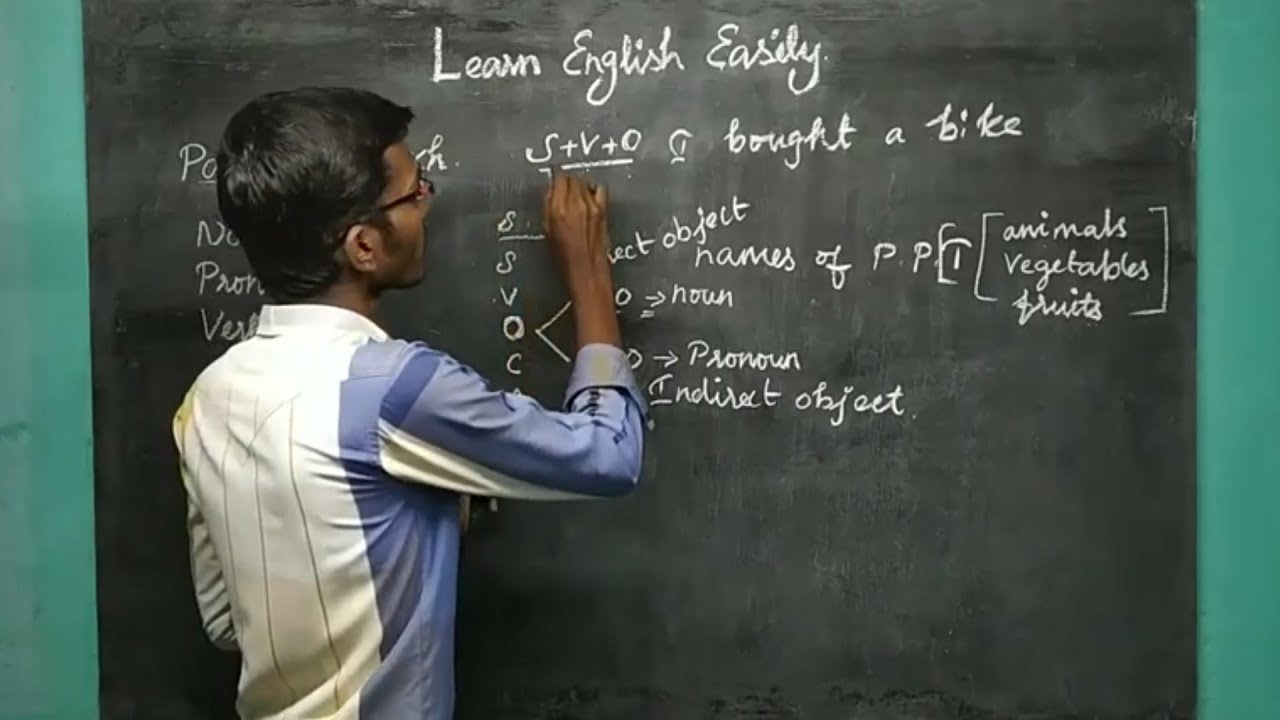 Learn English Easily.
S+V+O I bought a bike
S.
object
S names of P.P.T animals
vegetables
fruits
V O → noun
O
C O → Pronoun
Indirect object.